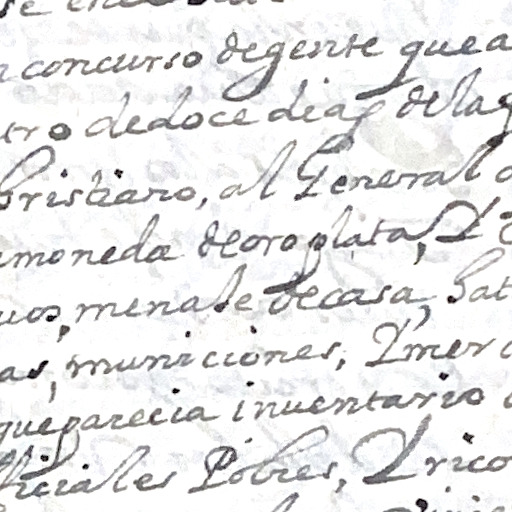 concurso de gente que a
tro de doce dias de la
christiano, al General
moneda de oro plata, Y
menaje de casa,
as, municiones, Y mer
que parecia inuentario
ficiales Pobres, Y rico